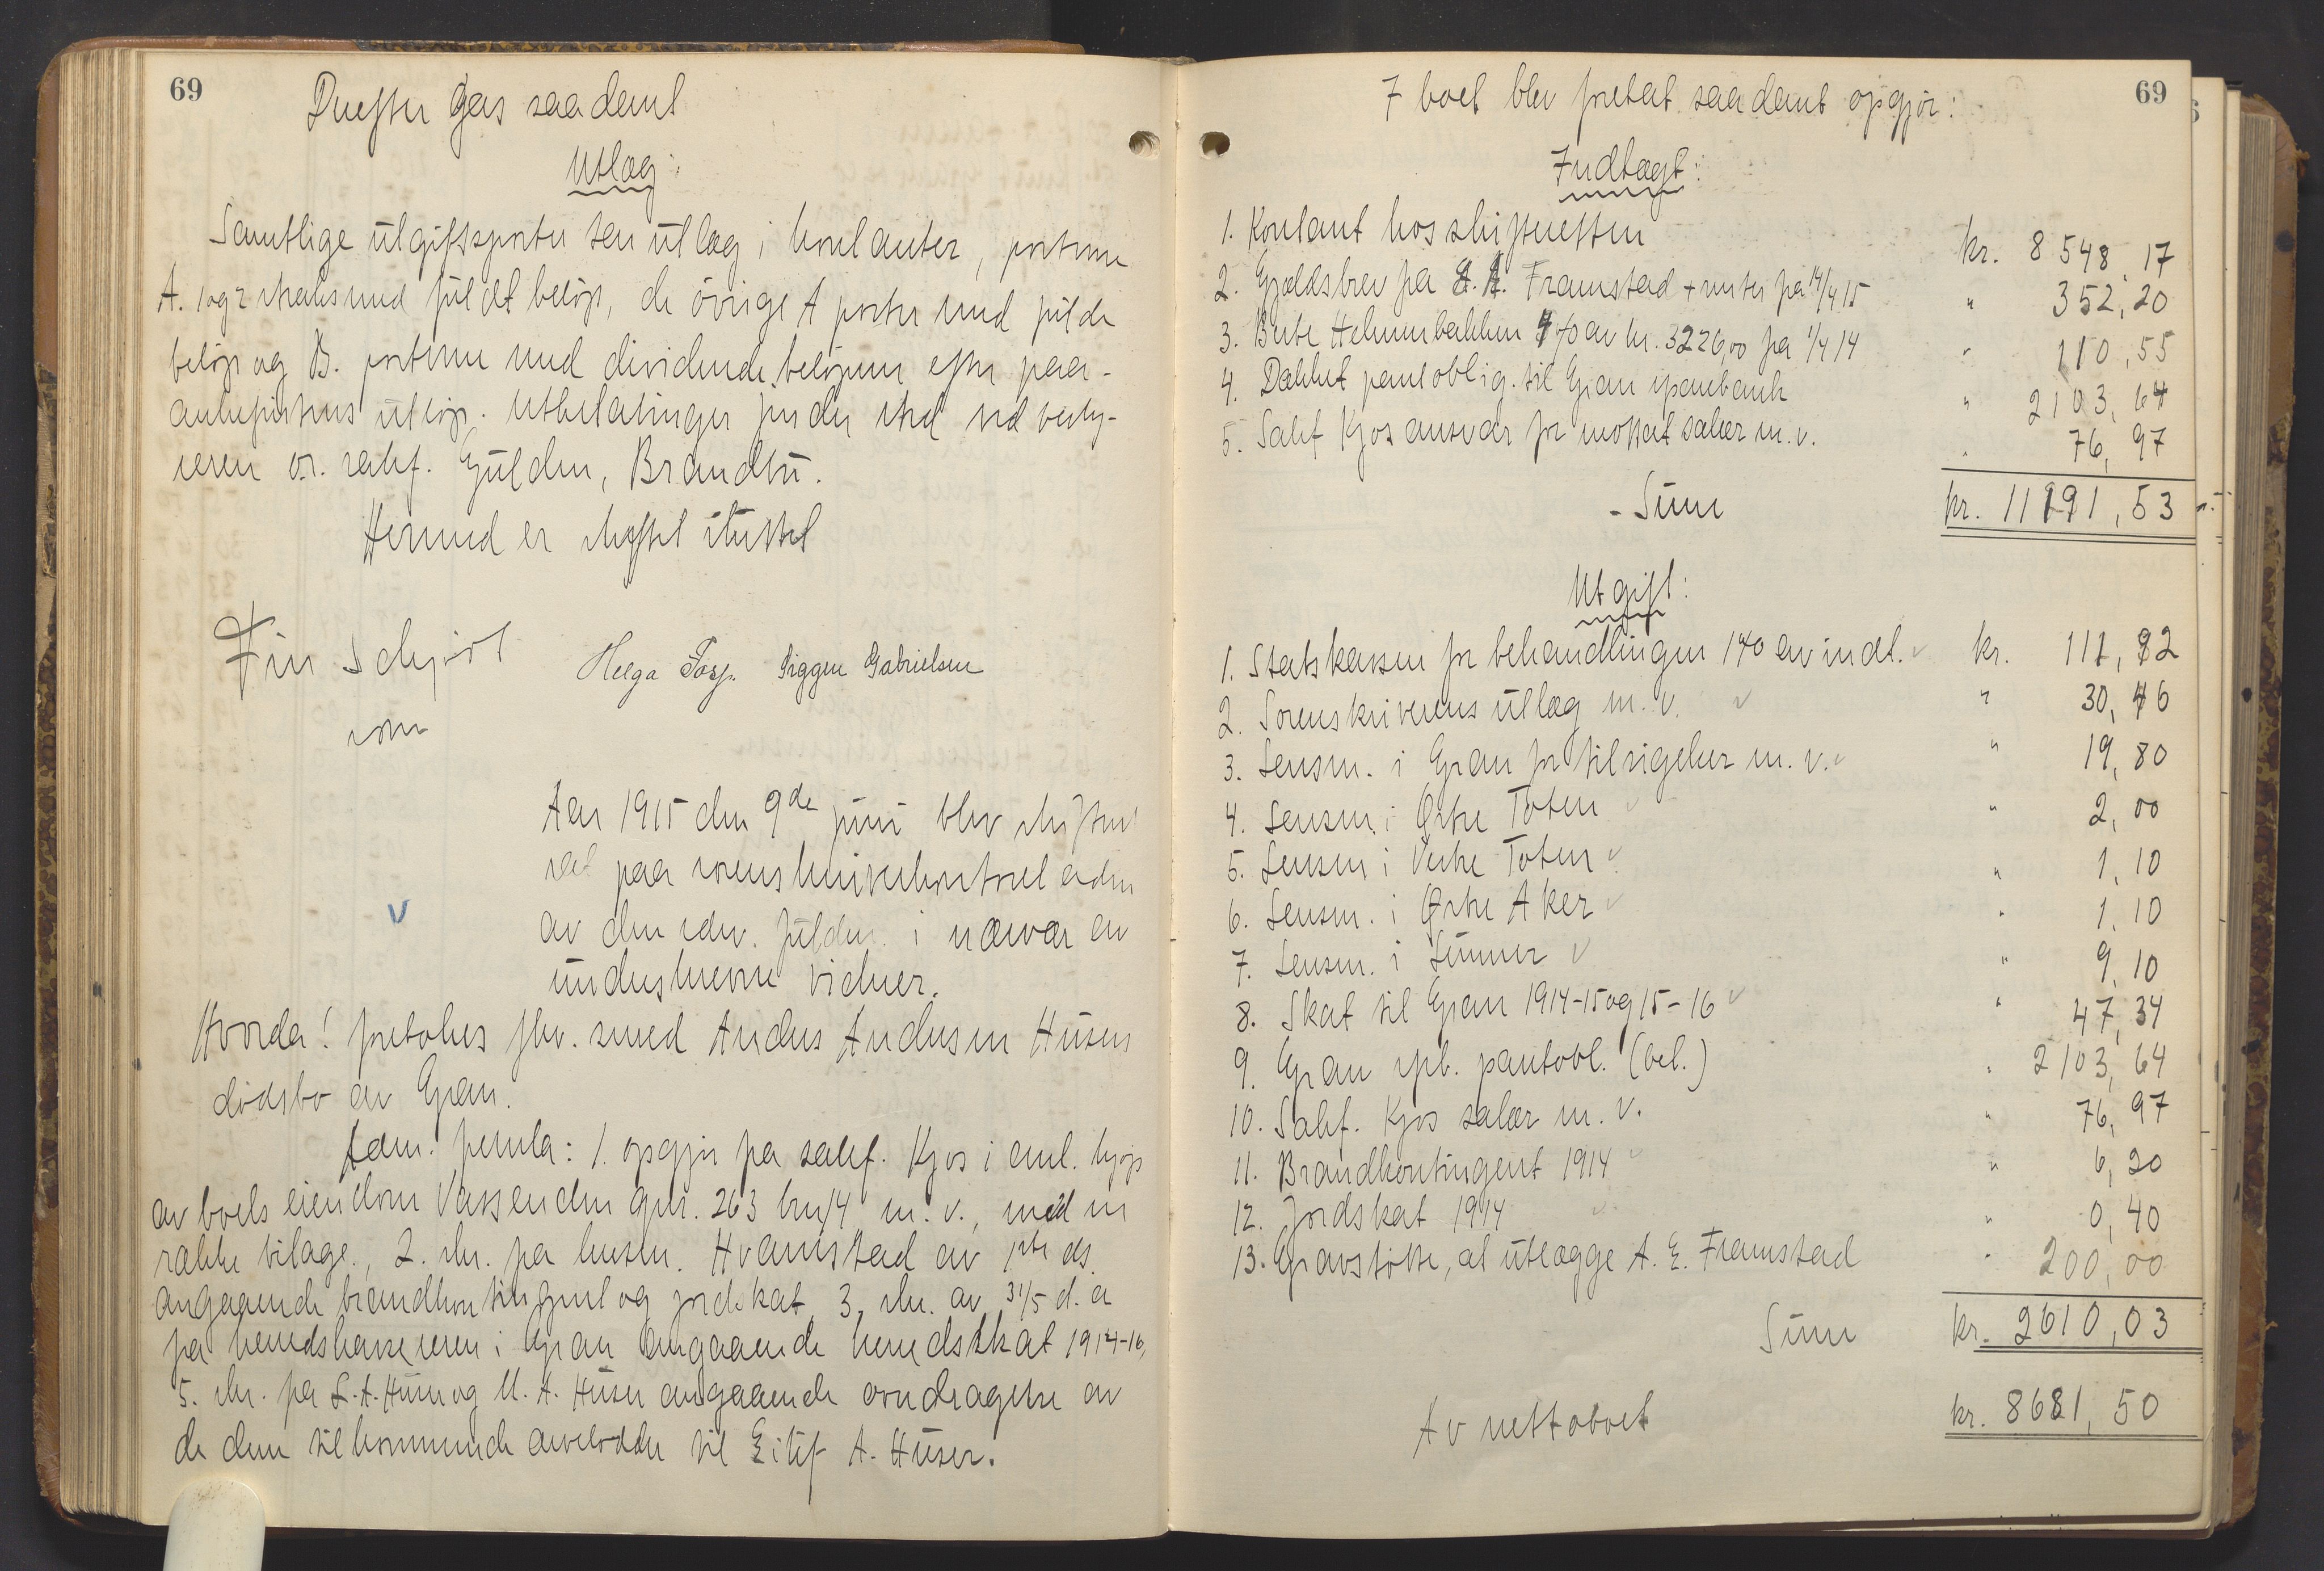 69
Derefter gas saadant
Utlæg:
Samtlige utgiftsposter sees utlæg i kontanter, posterne
A. 1 og 2 straks med fuldt beløp, de øvrige A poster med fulde
beløp og B. posterne med dividendebeløpene efter paa-
ankefristens utløp. Utbetalinger finder sted ved besty-
reren o.r. sakf. Gulden, Brandbu.
Hermed er skiftet sluttet
Finn Schjøtt
som
Helga Torp. Sigger Gabrielsen
Aar 1915 den 9de juni blev skifteret
sat paa sorenskriverkontoret adm
av den edsv. fuldm. i nærvær av
underskrevne vidner.
Hvorda! foretokes fhv. smed Anders Andersen Husers
dødsbo av Gran.
Adm. fremla: 1. opgjør fra sakf. Kjos i anl. kjøp
av boets eiendom Vassenden gnr. 263 brn/4 m. v., med en
række bilage, 2. skr. fra lensm. Hvamstad av 1ste ds.
angaaende brandkontingent og jordskat, 3. skr. av 31/5 d. a
fra herredskassereren i Gran angaaende herredsskat 1914-16,
5. skr. fra L. A. Huser og M. A. Huser angaaende overdragelse av
de dem tilkommende arvelodder til Eilif A. Huser.
69
I boet blev foretat saadant opgjør:
Indtægt:
1. Kontant hos skifteretten kr. 8548,17
2. Gjældsbrev fra A. Framstad + renter fra 14/4 15 " 352,20
3. Rente Helmenbakken 4 % av kr. 3226,00 fra 1/4 14 " 110,55
4. Dækket pantoblig. til Gran sparebank " 2103,64
5. Sakf Kjos ansvar for mottat salær m. v. " 76,97
Sum kr. 11191,53
Utgift:
1. Statskassen for behandlingen 1 % av indt. kr. 111,92
2. Sorenskriverens utlæg m. v. " 30,46
3. Lensm. i Gran for tilsigelser m. v. " 19,80
4. Lensm. i Østre Toten " 2,00
5. Lensm i Vestre Toten " 1,10
6. Lensm. i Østre Aker " 1,10
7. Lensm. i Lunner " 9,10
8. Skat til Gran 1914-15 og 15-16 " 47,34
9. Gran spb. pantobl. (bet.) " 2103,64
10. Sakf. Kjos salær m. v. " 76,97
11. Brandkontingent 1914 " 6,20
12. Jordskat 1914 " 0,40
13. Gravstøtte, at utlægge A. E. Framstad " 200,00
Sum kr. 2610,03
Av nettoboet kr. 8681,50